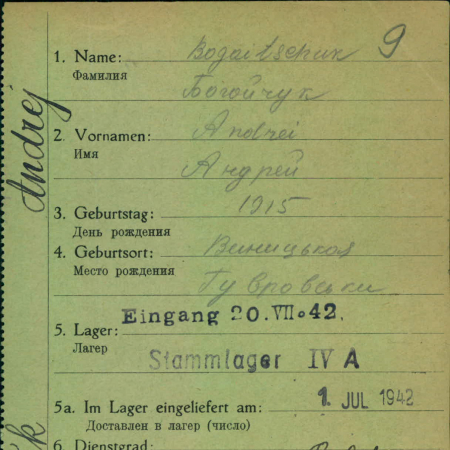 9
1. Name: Bogaitschuk
Фамилия
Богойчук
2. Vornamen: Andrei
Имя
Андрей
3. Geburtstag: 1915
День рождения
4. Geburtsort: Виницькоя
Место рождения
Eingang 20. VII. 42.
5. Lager:
Лагер
Stammlager IV A
5a. Im Lager eingeliefert am: 1. JUL 1942
Доставлен в лагер (число)
6. Dienstgrad:
Andrej